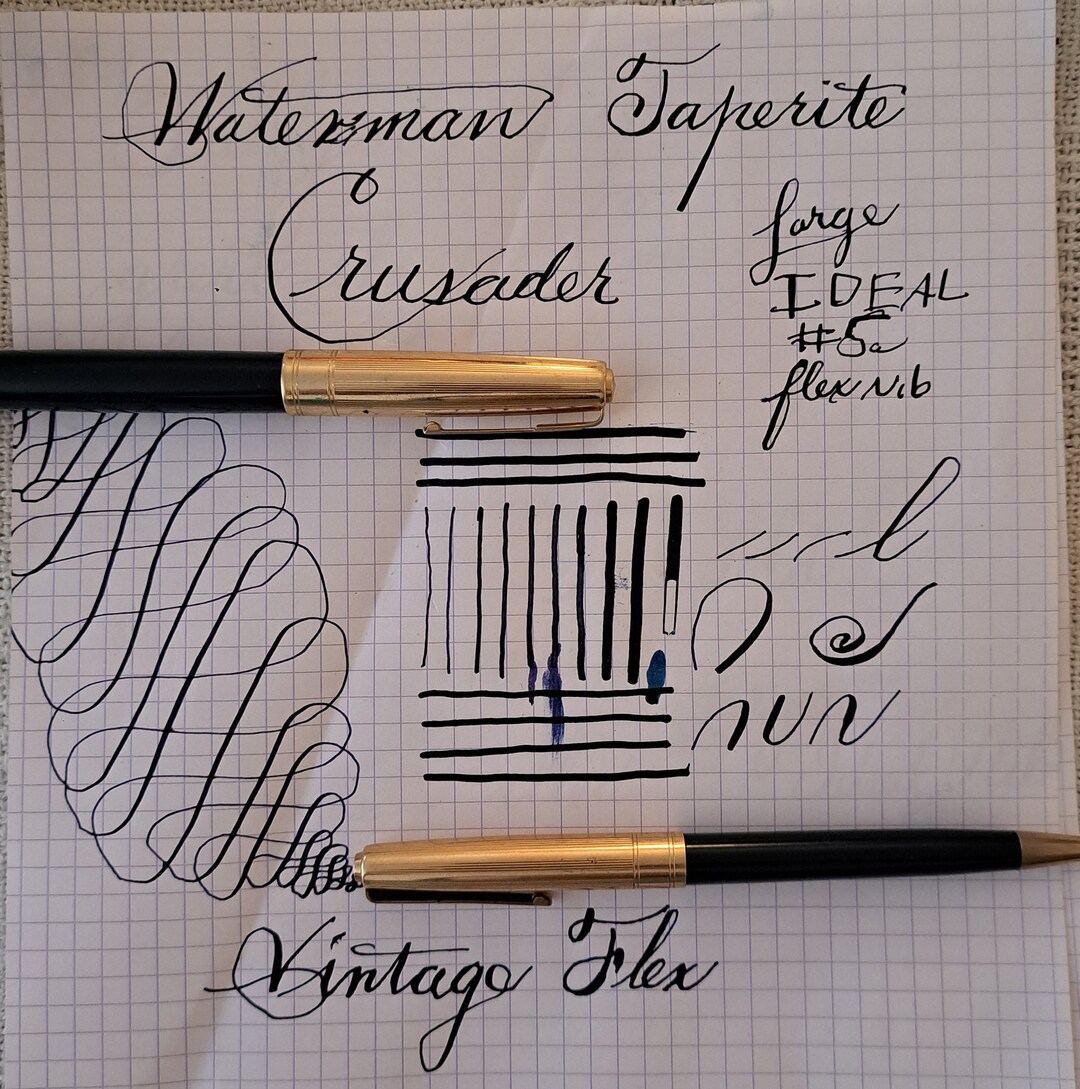 Waterman Taperite
Crusader
large
IDEAL
#5a
flex nib
nun
Vintage Flex